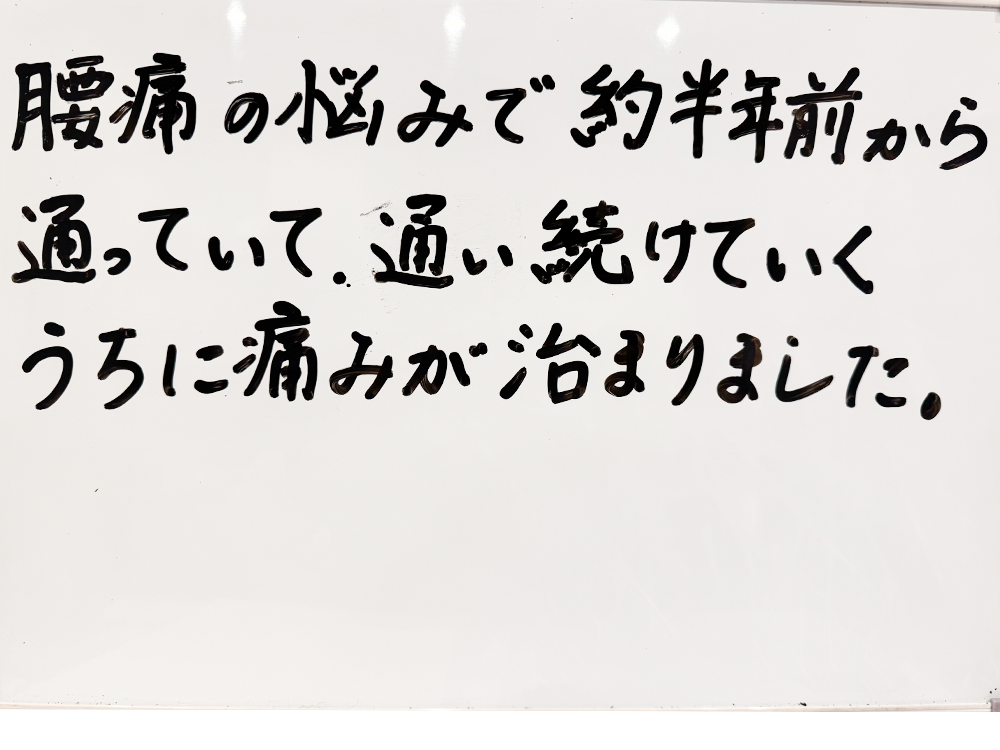 腰痛の悩みで約半年前から
通っていて.通い続けていく
うちに痛みが治まりました。